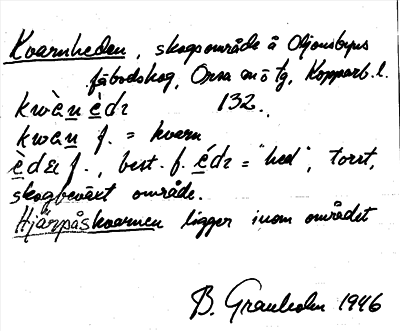 Kvarnheden, skogsområde å Oljonsbyns
fäbodskog, Orsa sn ö tg, Kopparb. l.
kwὰn ὲdɪ 132.
kwὰn f. = kvarn
ὲdɛ f., best. f. édɪ = "hed", torrt,
skogbeväxt område.
Hjärpåskvarnen ligger inom området
B. Granholm 1946